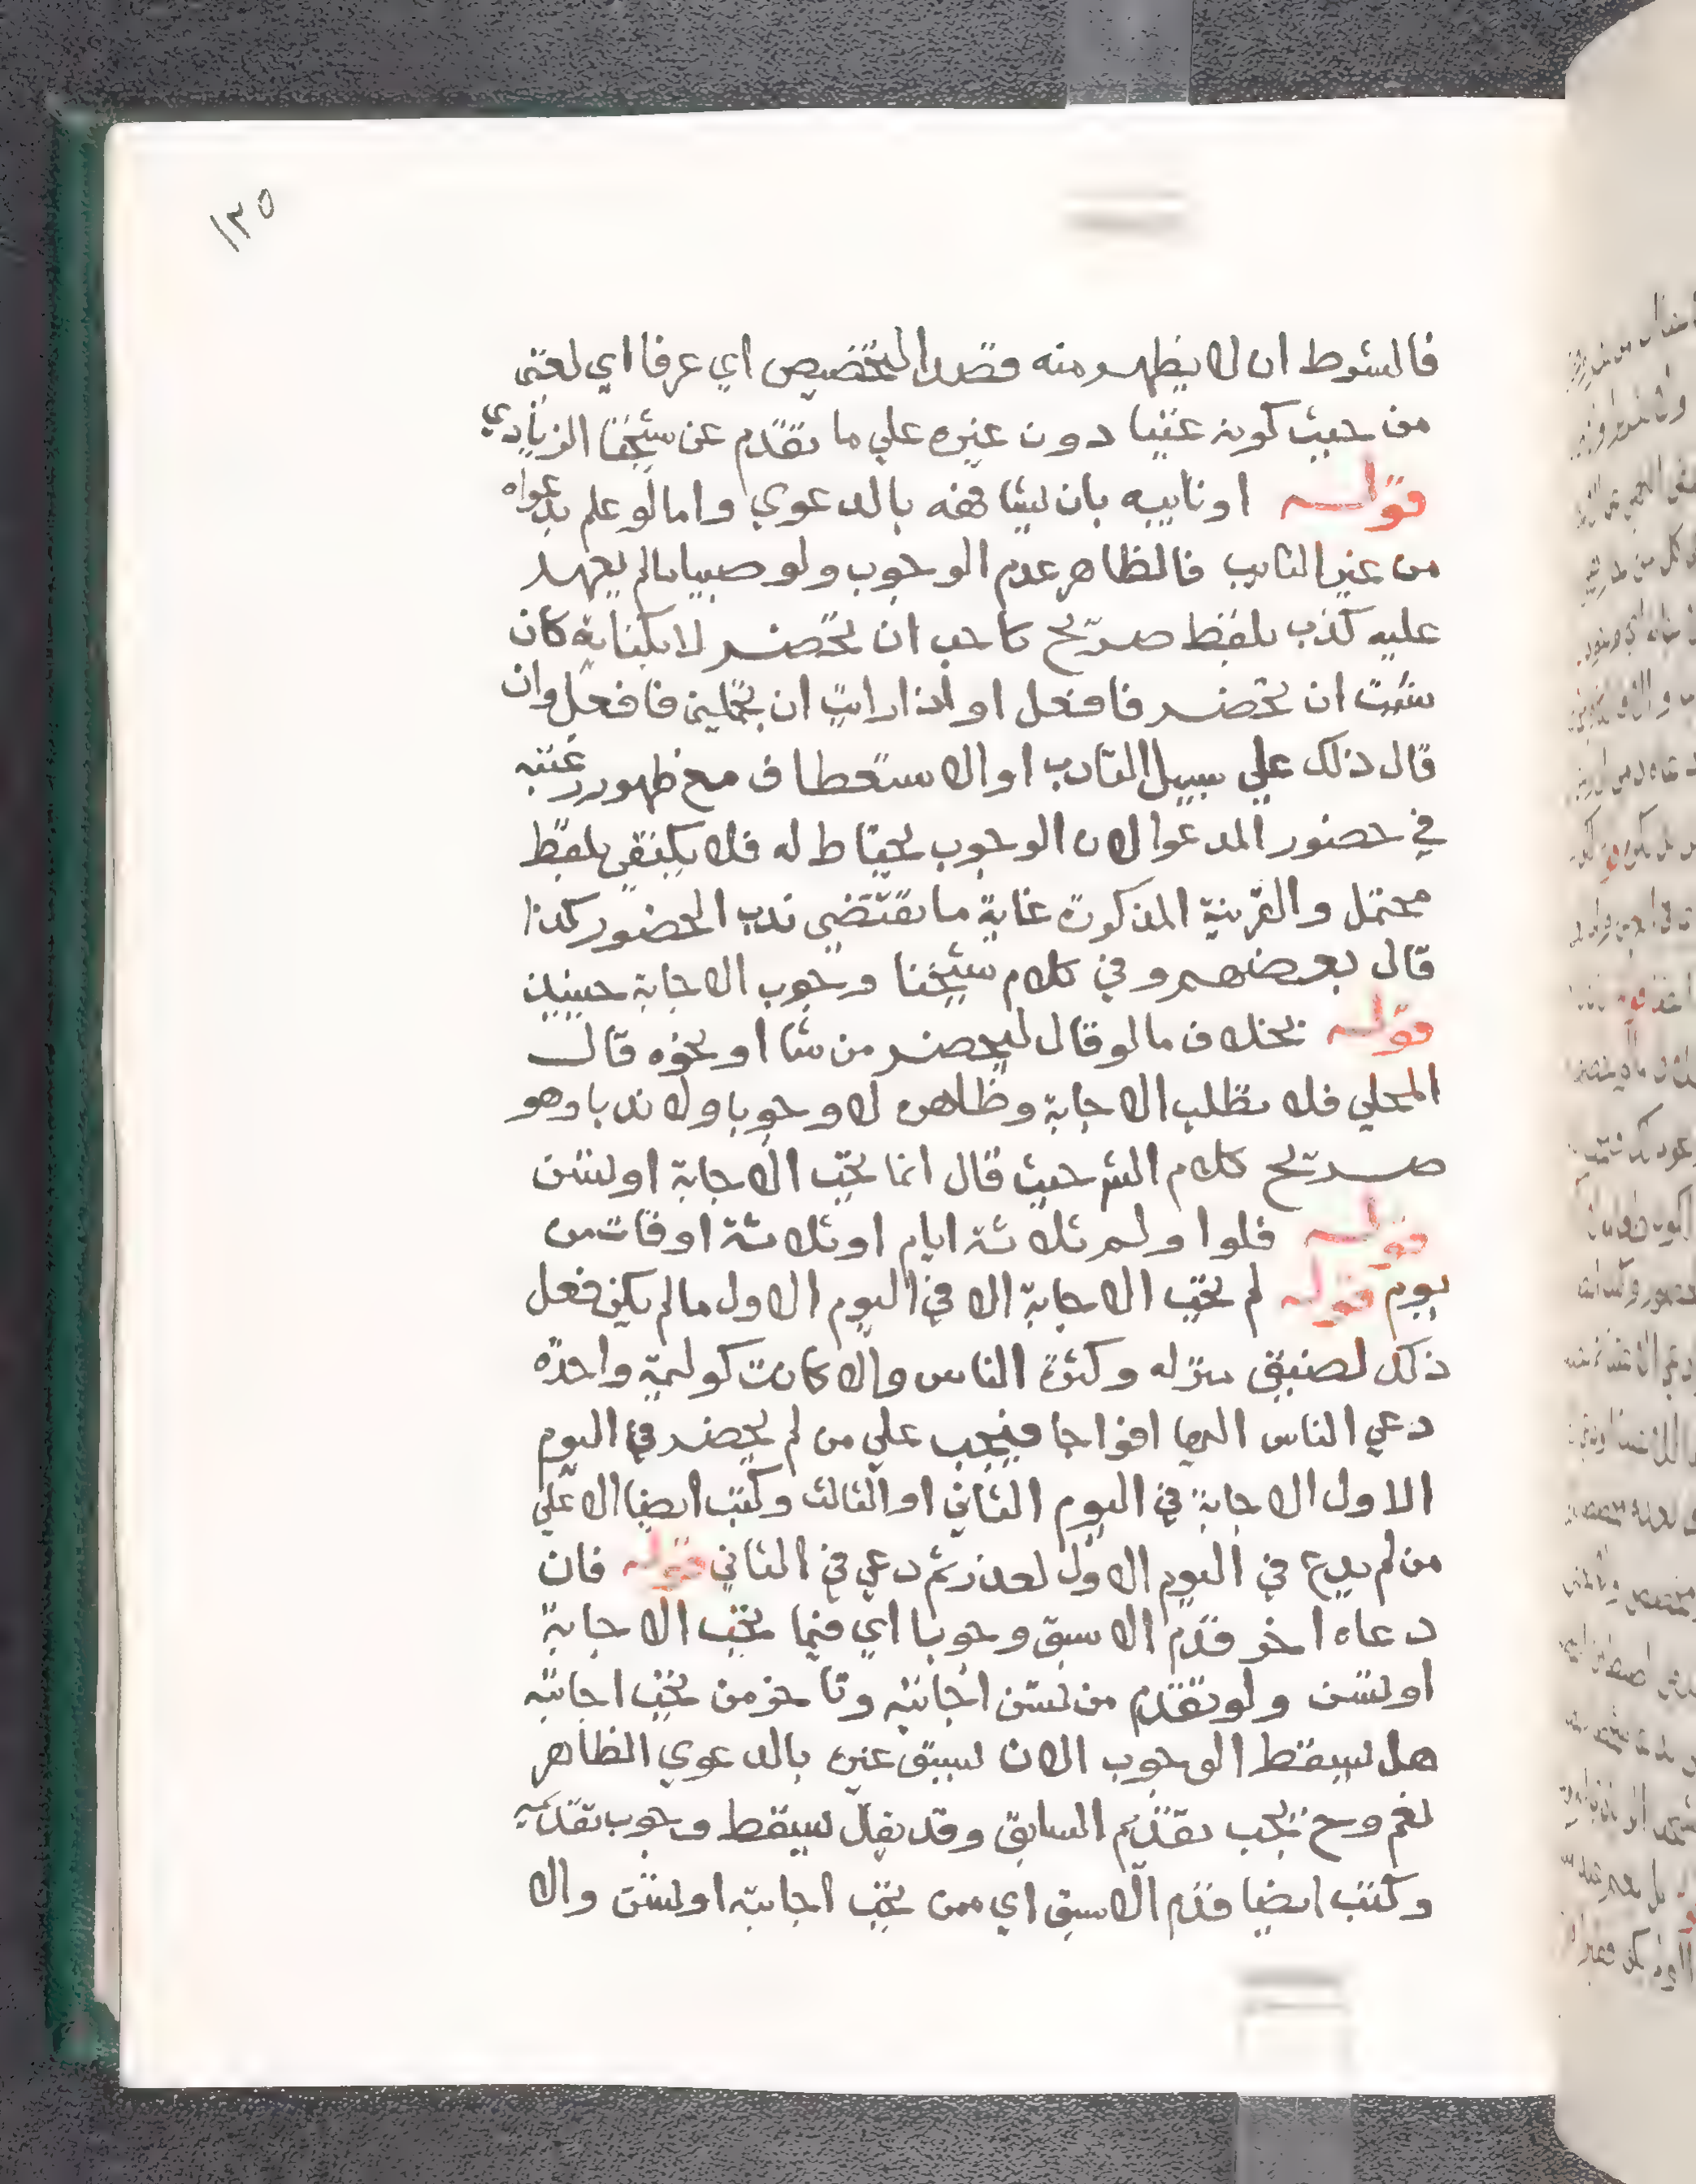 ١٣٥
فالشوط ان لا يظهر منه قصد التخصيص اي عرفا اي لغني
من حيث كونه غنيا دون غيره علي ما تقدم عن شيخنا الزيادي
قوله او نايبه بان يشافهه بالدعوي واما لو علم بدعواه
من غير النايب فالظاهر عدم الوجوب ولو صبيا مالم يعهد
عليه كذب بلفظ صريح كاحب ان تحضر لا بكناية كان
شئت ان تحضر فافعل او اذا رايت ان تجملني فافعل وان
قال ذلك علي سبيل التادب او الاستعطاف مع ظهور رغبته
في حضور المدعوا لان الوجوب يحتاط له فلا يكتفي بلفظ
محتمل والقرينة المذكورة غاية ما تقتضي ندب الحضور كذا
قال بعضهم وفي كلام شيخنا وجوب الاجابة حينيذ
قوله بخلاف ما لو قال ليحضر من شا او نحوه قال
المحلي فلا تطلب الاجابة وظاهره لا وجوبا ولا ندبا وهو
صريح كلام الش حيث قال انما تجب الاجابة او تسن
قوله فلوا ولم ثلاثة ايام او ثلاثة اوقات من
يوم قوله لم تجب الاجابة الا في اليوم الاول مالم يكن فعل
ذلك لضيق منزله وكثرة الناس والا كانت كوليمة واحدة
دعي الناس اليها افواجا فيجب علي من لم يحضر في اليوم
الاول الاجابة في اليوم الثاني او الثالث وكتب ايضا الا علي
من لم يدع في اليوم الاول لعذر ثم دعي في الثاني قوله فان
دعاه اخر قدم الاسبق وجوبا اي فيما تجب الاجابة
او تسن ولو تقدم من تسن اجابته وتاخر من تجب اجابته
هل يسقط الوجوب الان لسبق غيره بالدعوي الظاهر
نعم وح يجب تقديم السابق وقد يقال يسقط وجوب تقديمه
وكتب ايضا قدم الاسبق اي ممن تجب اجابته او تسن والا